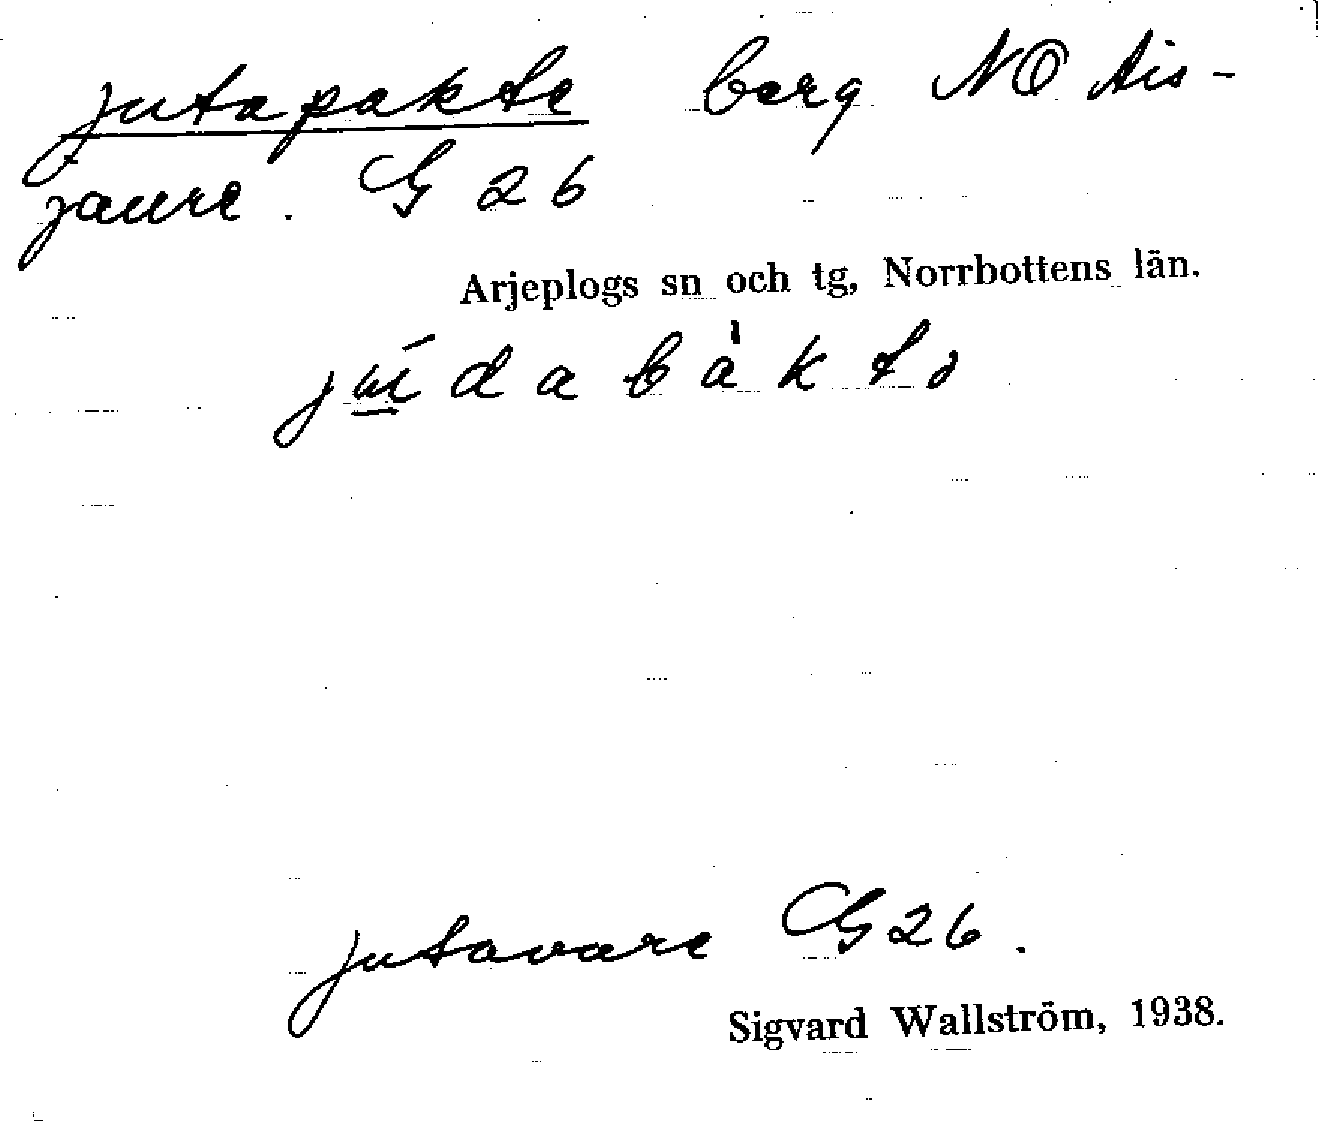 jutapakte berg NO Ais-
jaure. G 26
Arjeplogs sn och tg, Norrbottens län.
jutavare G 26.
Sigvard Wallström, 1938.